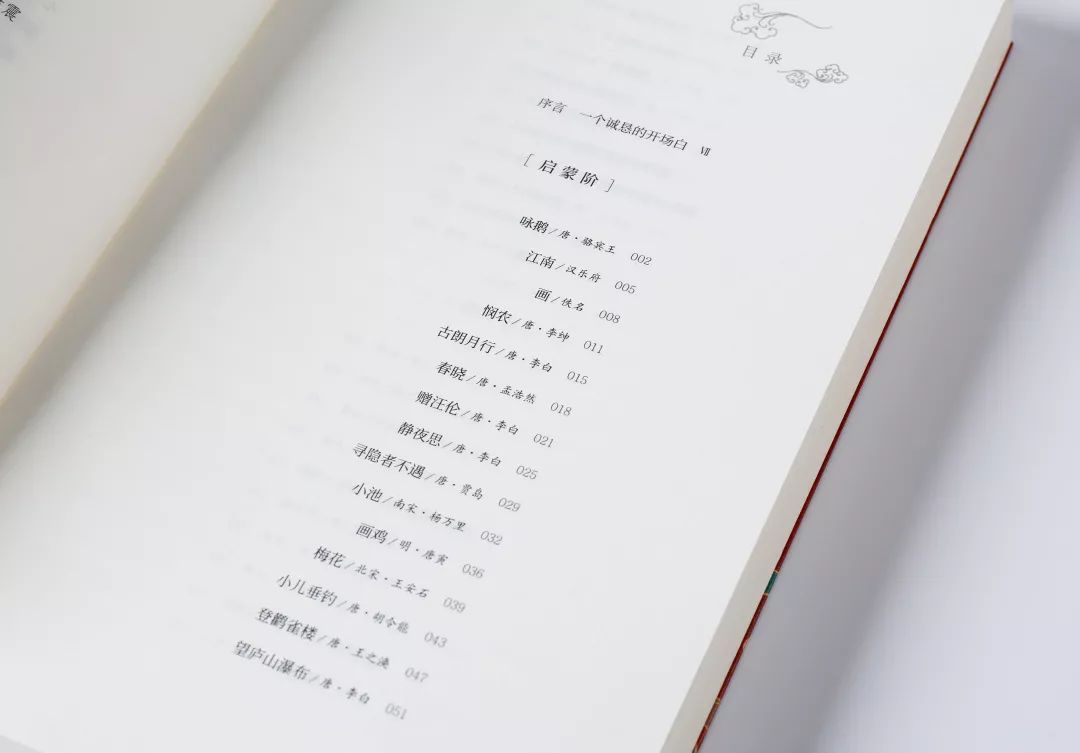 震
目录
序言 一个诚恳的开场白 Ⅶ
[启蒙阶]
咏鹅/唐·骆宾王 002
江南/汉乐府 005
画/佚名 008
悯农/唐·李绅 011
古朗月行/唐·李白 015
春晓/唐·孟浩然 018
赠汪伦/唐·李白 021
静夜思/唐·李白 025
寻隐者不遇/唐·贾岛 029
小池/南宋·杨万里 032
画鸡/明·唐寅 036
梅花/北宋·王安石 039
小儿垂钓/唐·胡令能 043
登鹳雀楼/唐·王之涣 047
望庐山瀑布/唐·李白 051